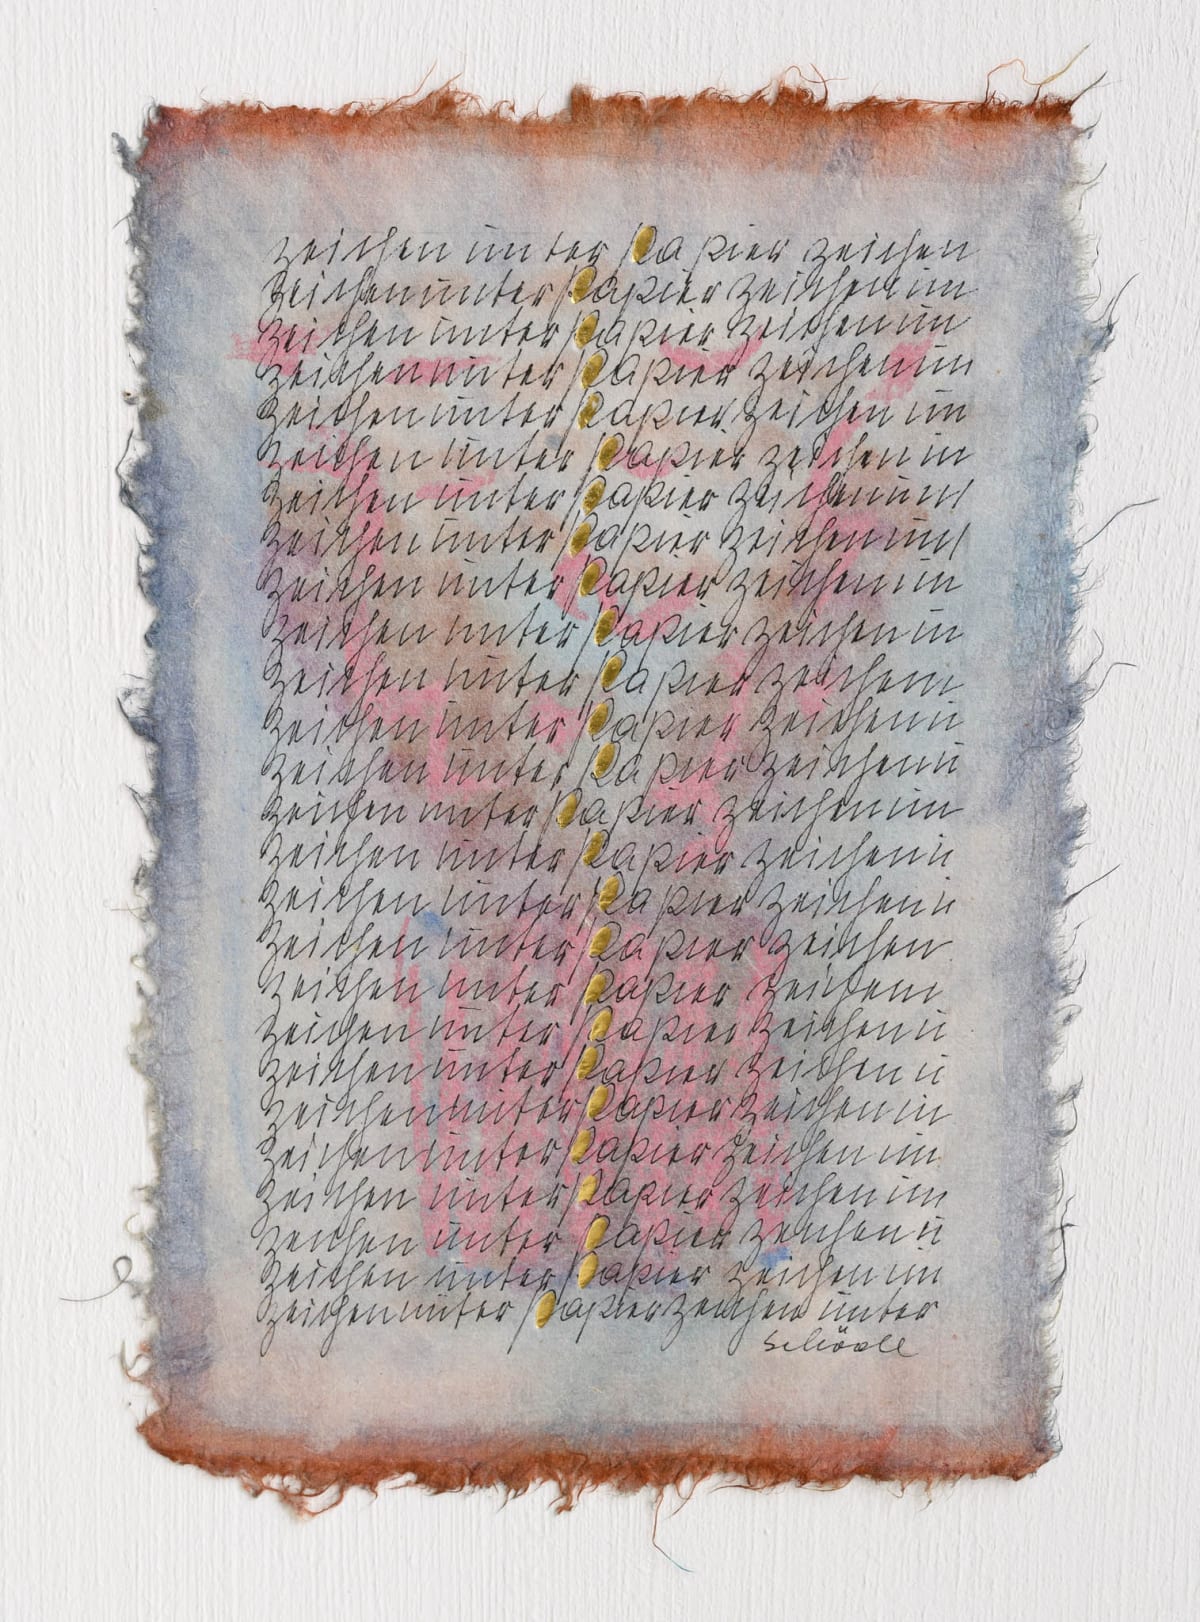 zeichen unter papier zeichen
zeichen unter papier zeichen un
zeichen unter papier zeichen un
zeichen unter papier zeichen un
zeichen unter papier zeichen un
zeichen unter papier zeichen un
zeichen unter papier zeichen un
zeichen unter papier zeichen un
zeichen unter papier zeichen un
zeichen unter papier zeichen un
zeichen unter papier zeichen
zeichen unter papier zeichen u
zeichen unter papier zeichen u
zeichen unter papier zeichen un
zeichen unter papier zeichen u
zeichen unter papier zeichen u
zeichen unter papier zeichen
zeichen unter papier zeichen
zeichen unter papier zeichen u
zeichen unter papier zeichen u
zeichen unter papier zeichen un
zeichen unter papier zeichen un
zeichen unter papier zeichen un
zeichen unter papier zeichen u
zeichen unter papier zeichen un
zeichen unter papier zeichen unter